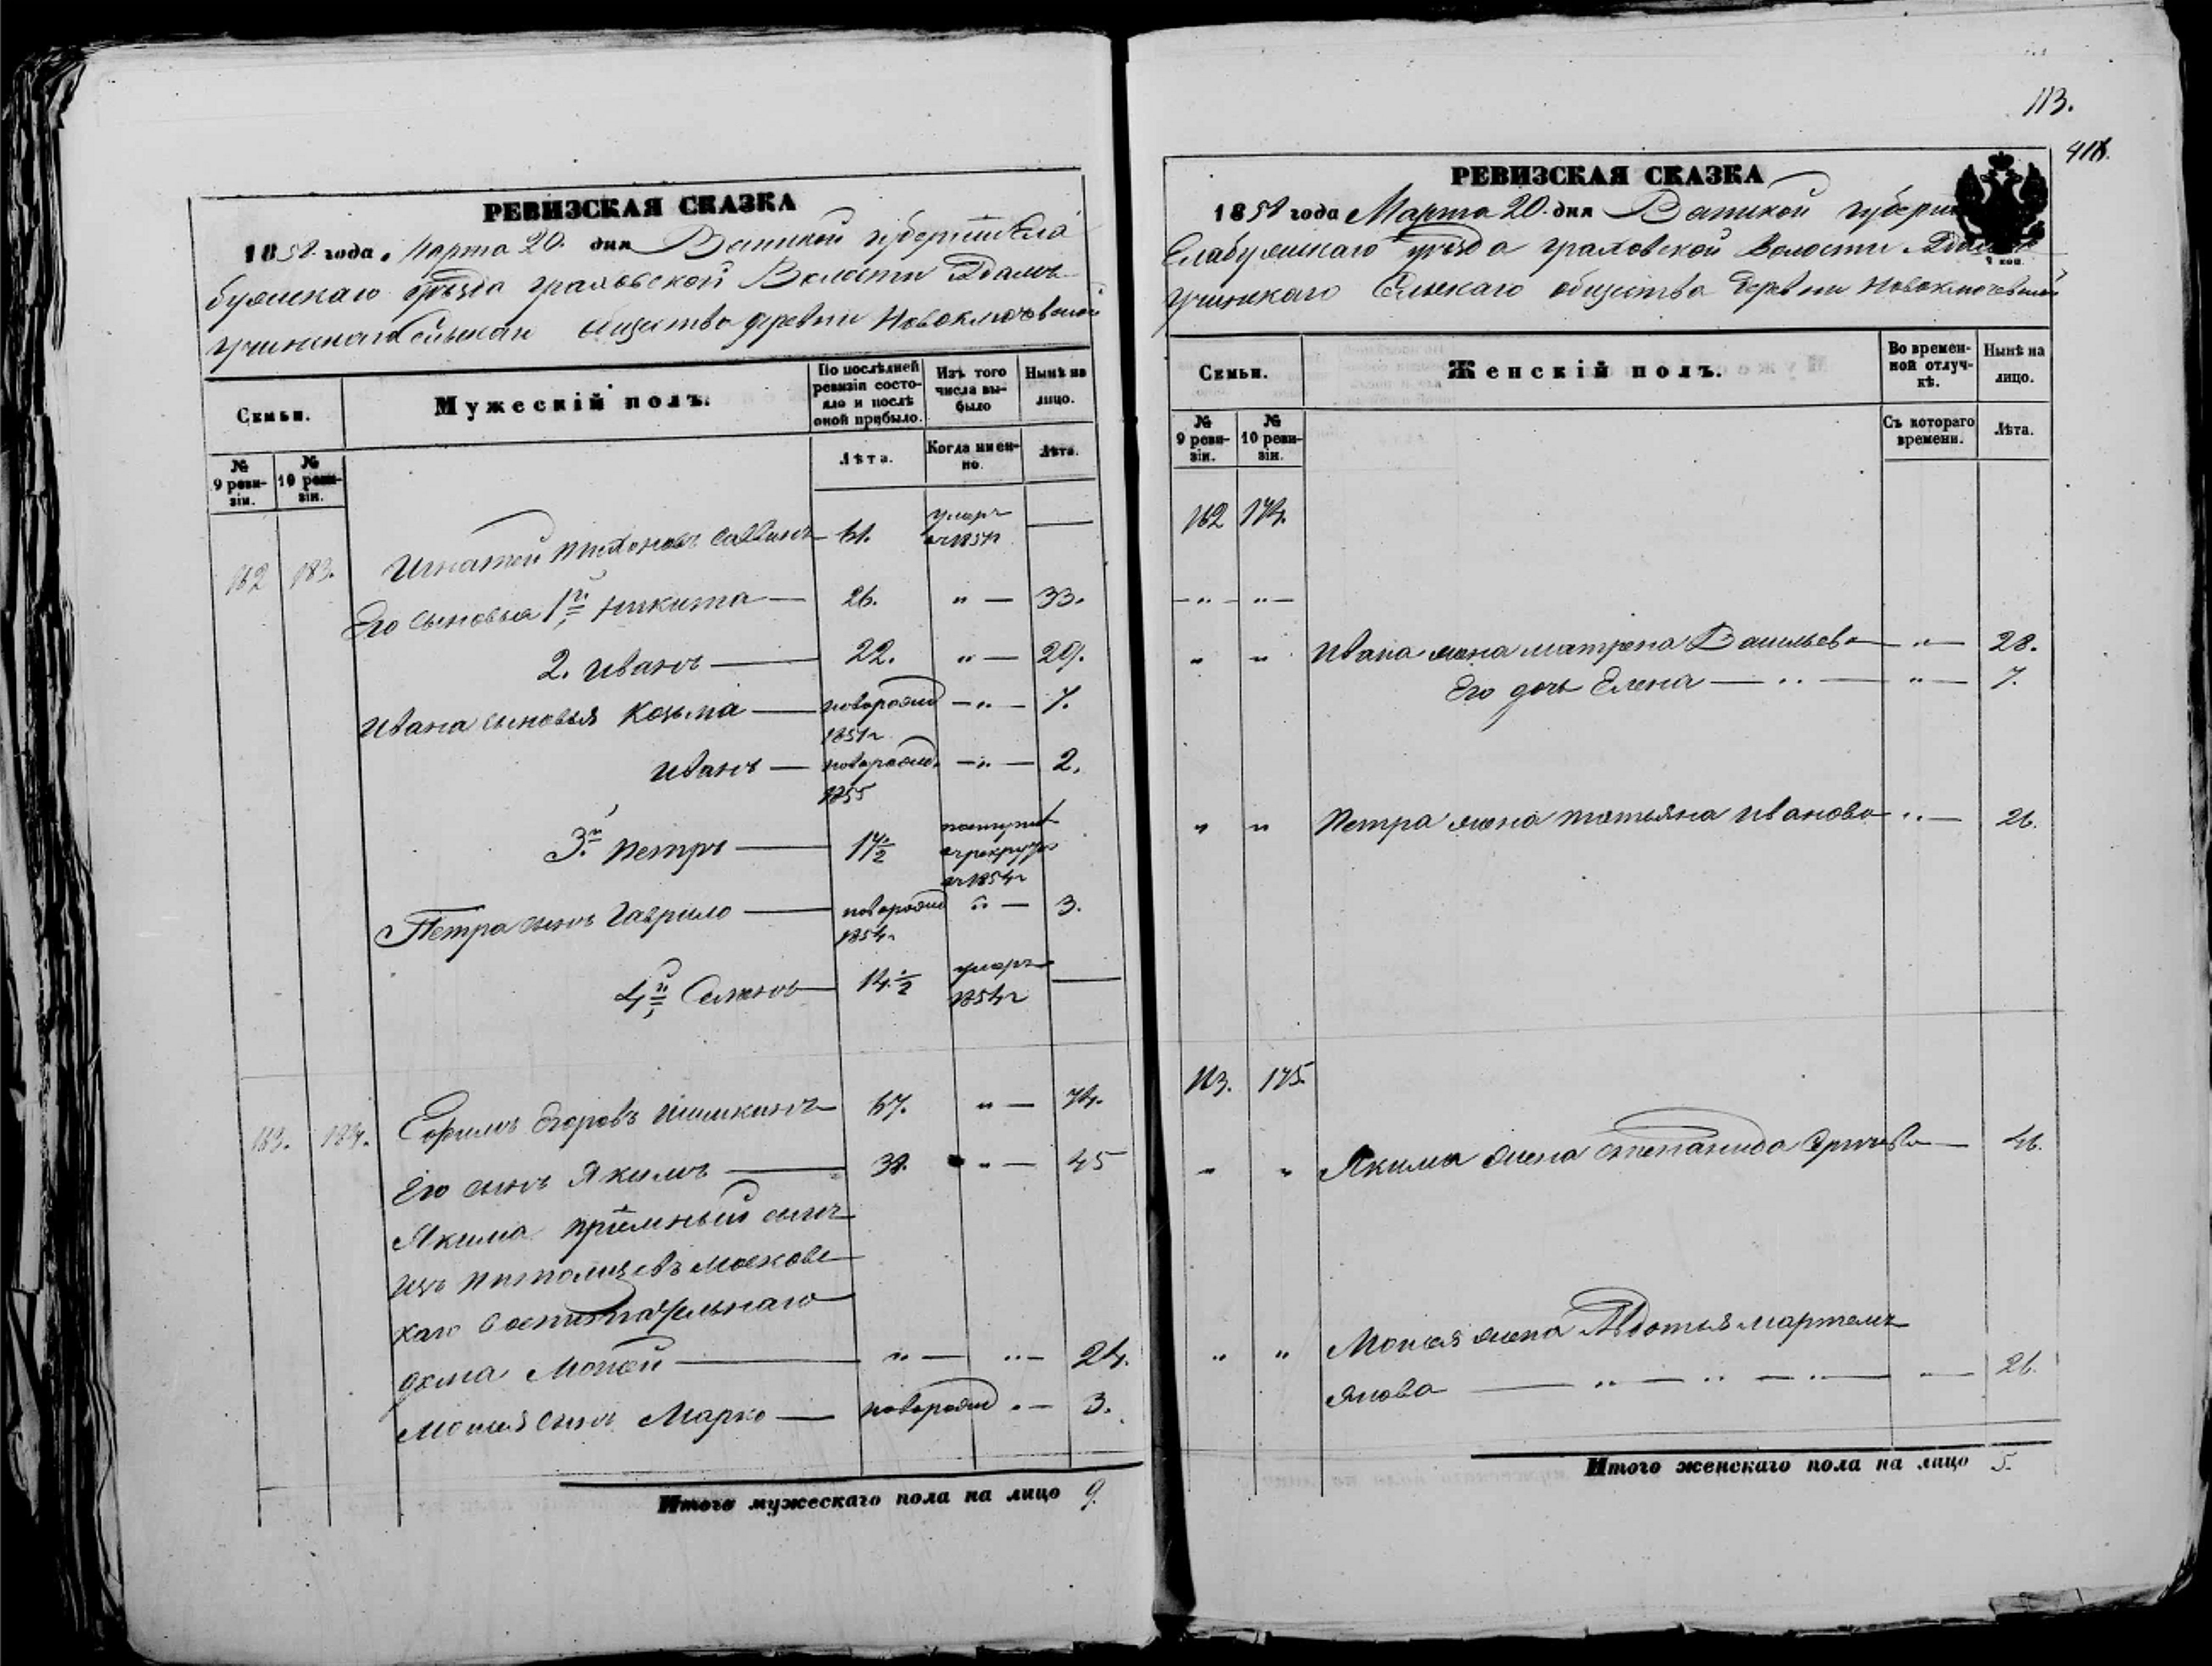 РЕВИЗСКАЯ СКАЗКА
1858 года Марта 20. дня Вятской губернии Ела
бужскаго уѣзда Граховской Волости Адамъ
учинскаго Сельскаго общества деревни Новоключевской
Семьи.
Мужескій полъ.
По послѣдней ревизіи состояло и послѣ оной прибыло.
Изъ того числа выбыло
Нынѣ на лицо.
№ 9 ревизіи.
№ 10 ревизіи.
Лѣта.
Когда именно.
Лѣта.
162 183. Игнатей Тихоновъ Саввинъ 61. умеръ въ 185 —
Его сыновья 1й Никита — 26. " — 33.
2. Иванъ — 22. " — 29.
Ивана сыновья Козьма — новорожд — " — 7.
1851г
Иванъ — новорожд. — " — 2.
1855
3й Петръ — 17½ поступилъ
въ рекруты
въ 1854г
Петра сынъ Гаврило — новорожд " — 3.
1854г
4й Семенъ — 14½ умеръ —
1854г
163. 184. Ефимъ Егоровъ Шишкинъ 67. " — 74.
Его сынъ Якимъ — 38. " — 45
Якима приемный сынъ
изъ питомцевъ Московс
каго Воспитательнаго
дома Моисей — " — " — 24.
Моисея сынъ Марко — новорожд " — 3.
Итого мужескаго пола на лицо 9.
113.
418.
РЕВИЗСКАЯ СКАЗКА
1858 года Марта 20. дня Вятской губерни
Елабужскаго уѣзда Граховской Волости
учинскаго Сельскаго общества деревни Новоключевской
Семьи.
Женскій полъ.
Во временной отлучкѣ.
Нынѣ на лицо.
№ 9 ревизіи.
№ 10 ревизіи.
Съ котораго времени.
Лѣта.
162 174.
— " — " —
" " Ивана жена Матрена Васильева — " — 28.
Его дочь Елена — " — " — 7.
" " Петра жена Татьяна Иванова " — 26.
163. 175.
" " Якима жена Степанида — 46.
" " Моисея жена Авдотья Мартемь
янова — " — " — " — " — 26.
Итого женскаго пола на лицо 5.